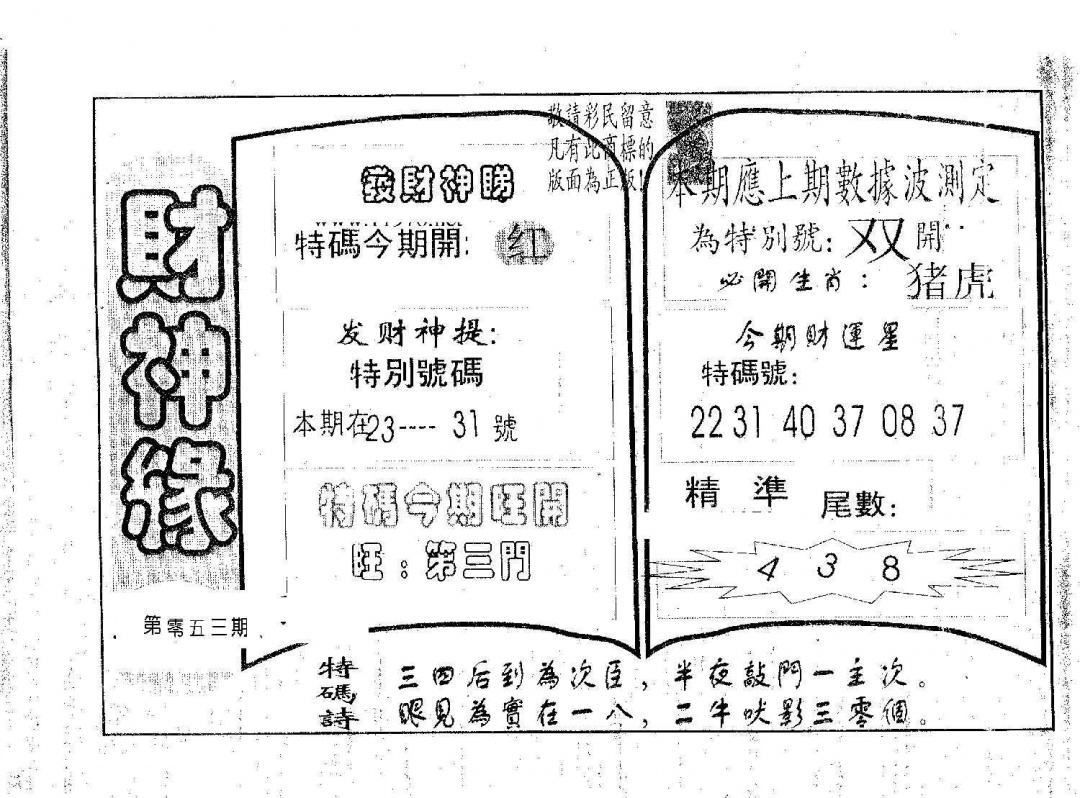 財神緣
第零五三期
敬請彩民留意
凡有此商標的
版面為正版!
發財神睇
特碼今期開: 红
发财神提:
特別號碼
本期在23---- 31 號
特碼今期旺開
旺:第三門
本期應上期數據波測定
為特別號: 双 開
必開生肖: 猪虎
今期財運星
特碼號:
22 31 40 37 08 37
精 準 尾數:
4 3 8
特碼詩
三四后到為次臣,半夜敲門一主次。
眼見為實在一八,二牛吠影三零個。